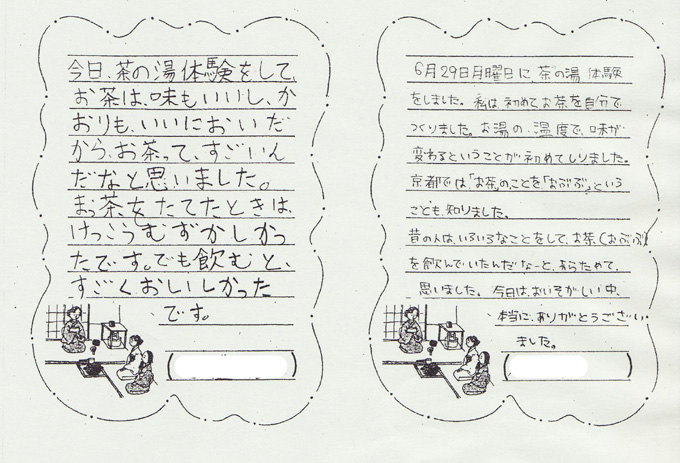 今日、茶の湯体験をして、
お茶は、味もいいし、か
おりも、いいにおいだ
から、お茶って、すごいん
だなと思いました。
まっ茶をたてたときは、
けっこうむずかしかっ
たです。でも飲むと、
すごくおいしかった
です。
6月29日月曜日に、茶の湯体験
をしました。私は、初めてお茶を自分で
つくりました。お湯の、温度で、味が
変わるということが初めてしりました。
京都では、「お茶」のことを「おぶぶ」という
ことも、知りました。
昔の人は、いろいろなことをして、お茶(おぶぶ)
を飲んでいたんだなーと、あらためて、
思いました。今日は、おいそがしい中、
本当に、ありがとうござい
ました。